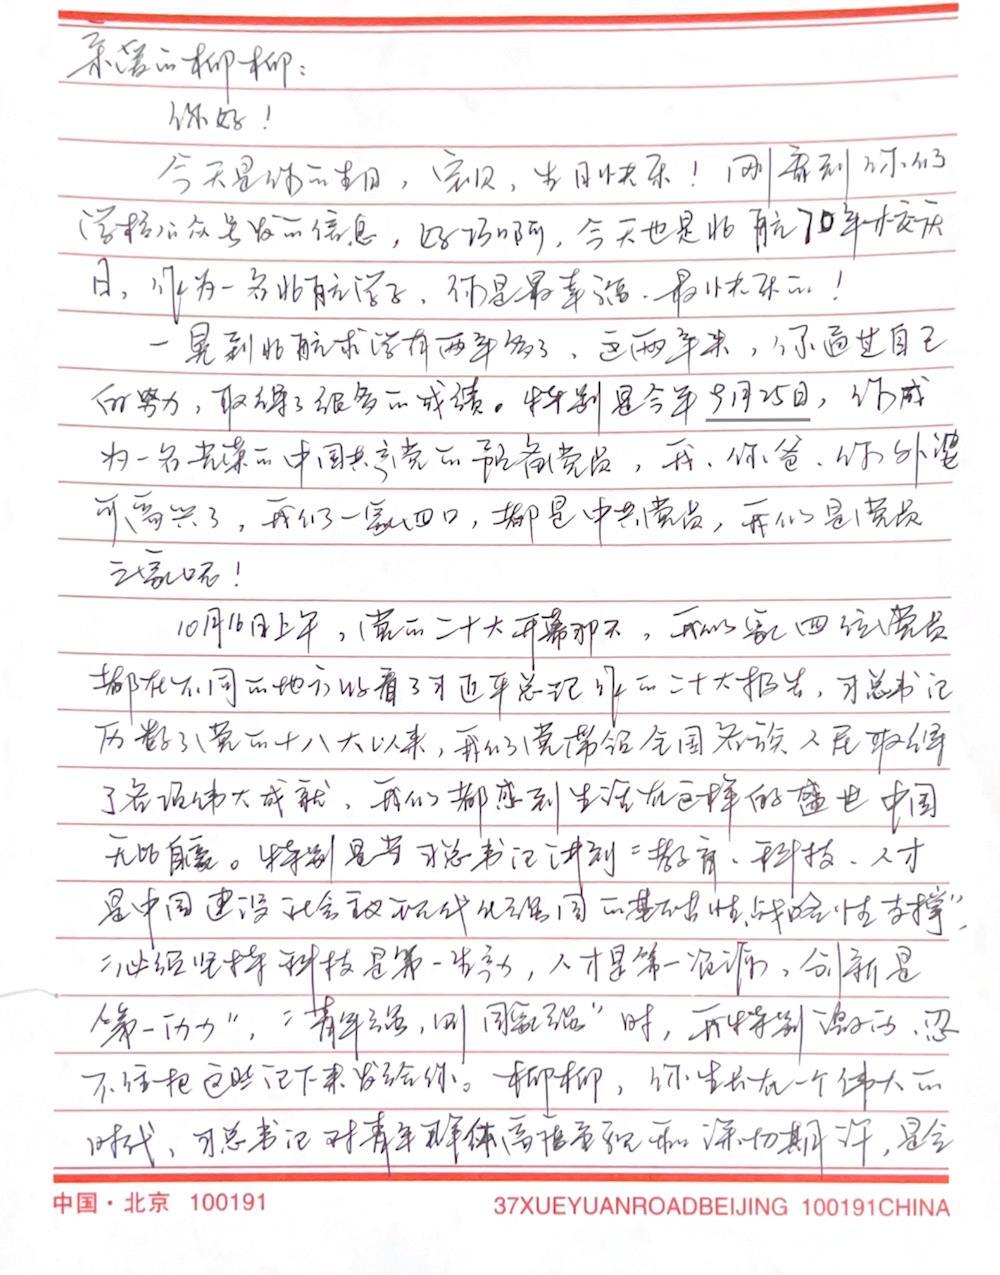 亲爱的柳柳：
你好！
今天是你的生日，宝贝，生日快乐！刚看到你们
学校公众号发的信息，好巧啊，今天也是北航70年校庆
日，作为一名北航学子，你是最幸福、最快乐的！
一晃到北航求学有两年多了，这两年来，你通过自己
的努力，取得了很多的成绩。特别是今年9月25日，你成
为一名光荣的中国共产党的预备党员，我、你爸、你外婆
可高兴了，我们一家四口，都是中共党员，我们是党员
之家呢！
10月16日上午，党的二十大开幕那天，我们家四位党员
都在不同的地方收看了习近平总记作的二十大报告，习总书记
历数了党的十八大以来，我们党带领全国各族人民取得
了各项伟大成就，我们都感到生活在这样的盛世中国
无比自豪。特别是当习总书记讲到“教育、科技、人才
是中国建设社会主义现代化强国的基础性、战略性支撑”，
“必须坚持科技是第一生产力，人才是第一资源，创新是
第一动力”，“青年强，则国家强”时，我特别激动，忍
不住把这些记下来发给你。柳柳，你生长在一个伟大的
时代，习总书记对青年群体高度重视和深切期许，是会
中国·北京 100191
37XUEYUANROADBEIJING 100191CHINA